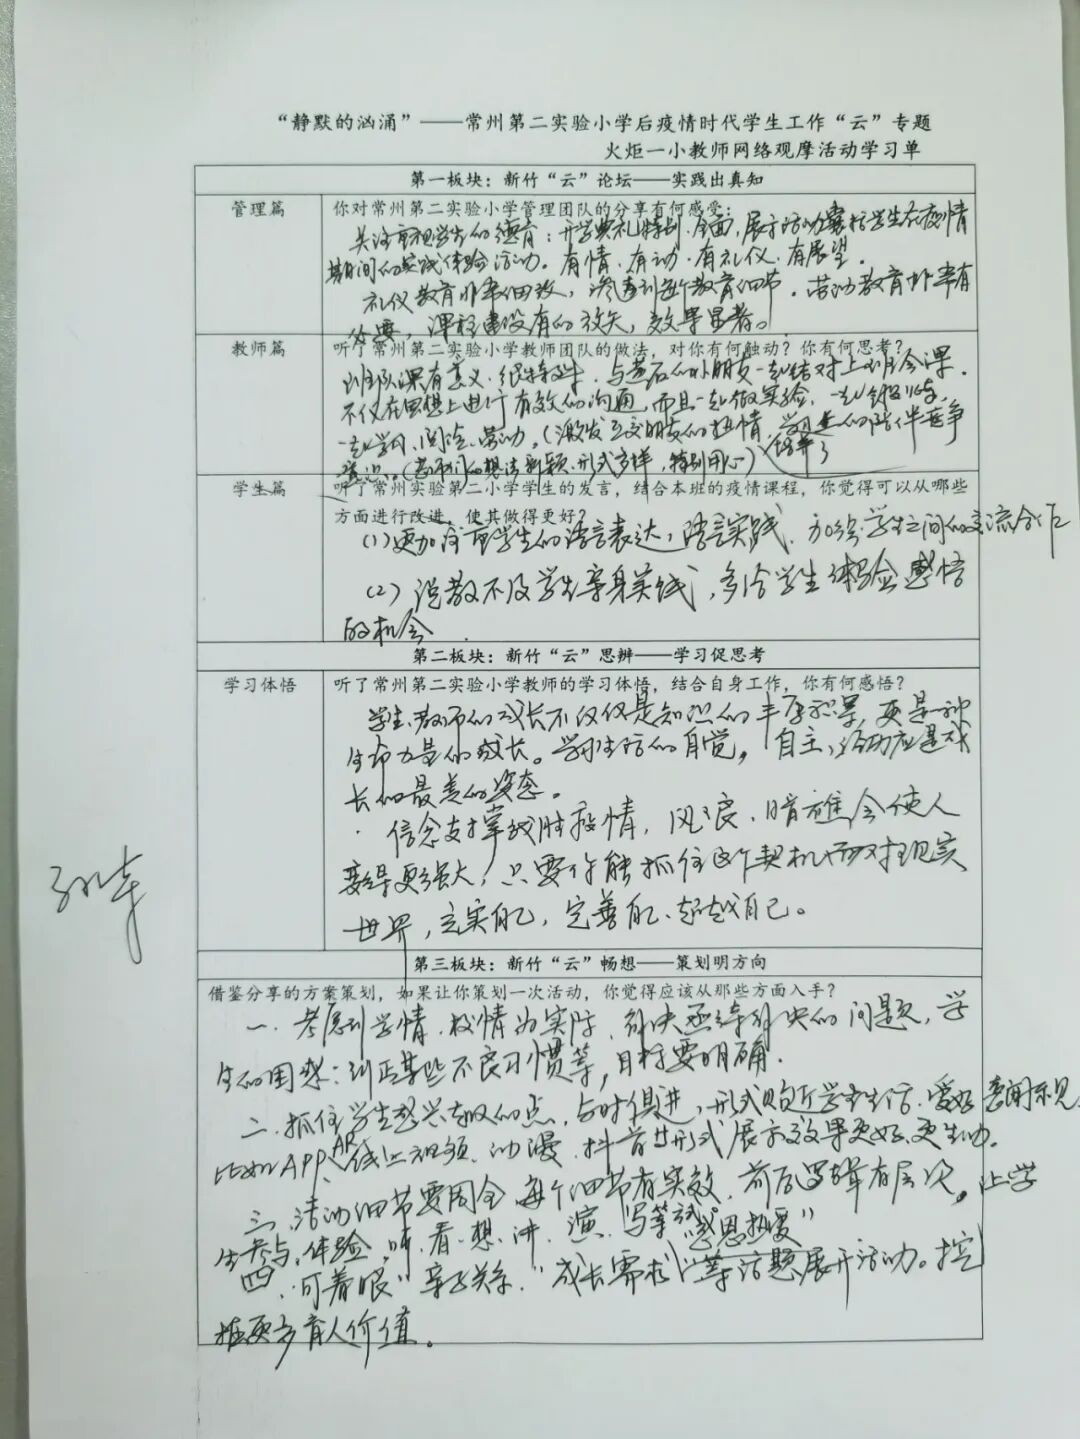 “静默的汹涌”——常州第二实验小学后疫情时代学生工作“云”专题
火炬一小教师网络观摩活动学习单
第一板块：新竹“云”论坛——实践出真知
管理篇
你对常州第二实验小学管理团队的分享有何感受：
关注重视学生的德育：开学典礼特别、全面，展示活动囊括学生在疫情
期间的实践体验活动。有情、有动、有礼仪、有展望。
礼仪教育非常细致，渗透到每个教育细节。劳动教育非常有
必要，课程建设有的放矢，效果显著。
教师篇
听了常州第二实验小学教师团队的做法，对你有何触动？你有何思考？
班队课有意义、很特殊，与黄石的小朋友一起结对上班会课，
不仅在思想上进行有效的沟通，而且一起做实验、一起
一起学习、阅读、劳动。（激发了交朋友的热情，培养了学习上的陪伴竞争
意识。（老师们的想法新颖、形式多样，特别用心）
学生篇
听了常州实验第二小学学生的发言，结合本班的疫情课程，你觉得可以从哪些
方面进行改进，使其做得更好？
（1）更加注重学生的语言表达，语言实践，加强学生之间的交流合作
（2）说教不及学生亲身实践，多给学生体验感悟
的机会
第二板块：新竹“云”思辨——学习促思考
学习体悟
听了常州第二实验小学教师的学习体悟，结合自身工作，你有何感悟？
学生、教师的成长不仅仅是知识的丰厚积累，更是一种
生命力量的成长。学习生活的自觉，自主、活动应是成
长的最美的姿态。
信念支撑战胜疫情，风浪、暗礁会使人
变得更强大，只要你能抓住这个契机面对现实
世界，充实自己，完善自己、超越自己。
孙华
第三板块：新竹“云”畅想——策划明方向
借鉴分享的方案策划，如果让你策划一次活动，你觉得应该从那些方面入手？
一、考虑到学情、校情的实际，解决亟待解决的问题，学
生的困惑：纠正某些不良习惯等，目标要明确。
二、抓住学生感兴趣的点，与时俱进，形式贴近学生生活、爱好、喜闻乐见，
比如APP、AR、线上视频、动漫、抖音等形式展示效果更好、更生动。
三、活动细节要周全，每个细节有实效，前后逻辑有层次。让学
生参与、体验、听、看、想、讲、演、写等
四、可着眼“亲子关系”“成长需求”“感恩热爱”等话题展开活动。挖
掘更多育人价值。